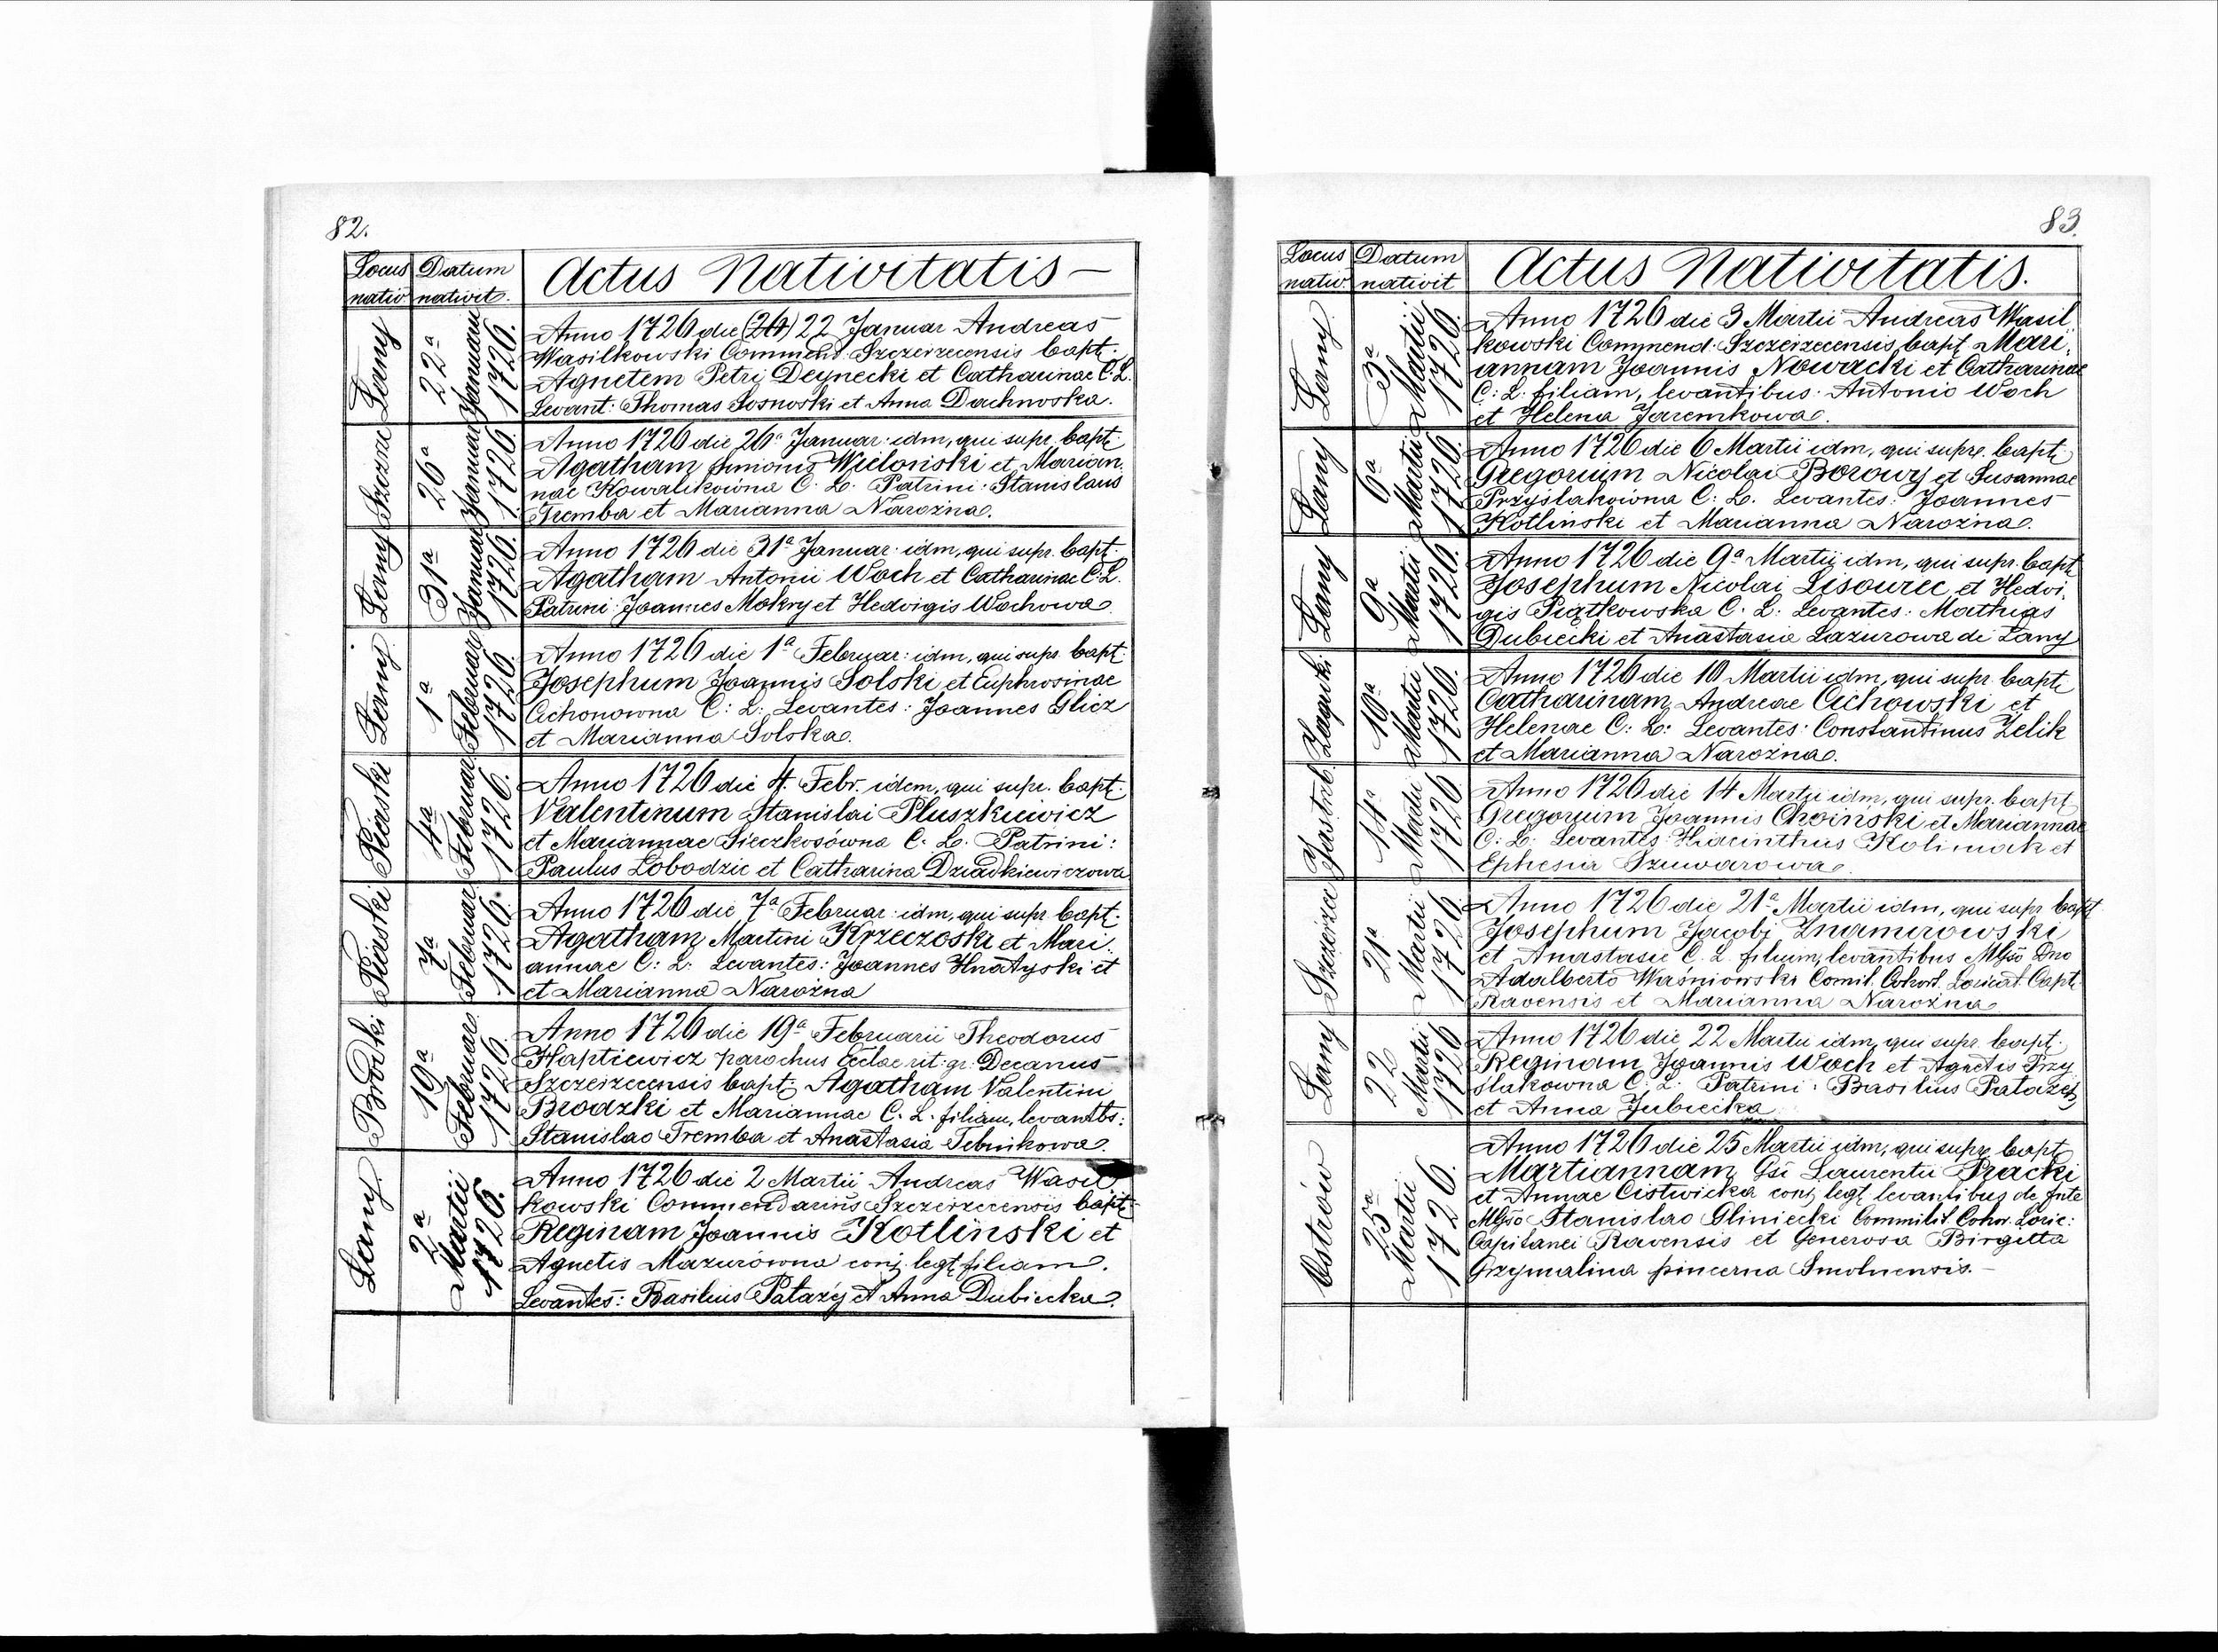 82.
Locus Datum Actus Nativitatis —
nativ nativit.
Łany 22a Januari 1726. Anno 1726 die (26) 22 Januar Andreas
Wasilkowski Commend. Szczerzecensis bapt.
Agnetem Petri Deynecki et Catharinae C. L.
Levant: Thomas Sosnoski et Anna Dachnoska.
Szczerz 26a Januar 1726. Anno 1726 die 26a Januar: idm, qui supr. bapt.
Agatham Simonis Wieloński et Marian.
nae Kowalikówna C. L. Patrini: Stanislaus
Tremba et Marianna Narożna.
Łany 31a Januar 1726. Anno 1726 die 31a Januar: idm, qui supr. bapt.
Agatham Antonii Woch et Catharinae C. L.
Patrini: Joannes Mokry et Hedvigis Wochowa
Łany 1a Februar 1726. Anno 1726 die 1a Februar: idm, qui supr. bapt.
Josephum Joannis Solski et Euphrosinae
Cichonowna C: L: Levantes: Joannes Glicz
et Marianna Solska.
Piaski 4a Februar 1726. Anno 1726 die 4. Febr. idem, qui supr. bapt.
Valentinum Stanislai Pluszkiewicz
et Mariannae Sieczkosówna C. L. Patrini:
Paulus Lobodzic et Catharina Dziadkiewiczowa
Piaski 7a Februar 1726. Anno 1726 die 7a Februar: idm, qui supr bapt.
Agatham Martini Krzeczoski et Mari.
annae C: L: Levantes: Joannes Hnatyski et
et Marianna Narożna
Brodki 19a Februar. 1726. Anno 1726 die 19a Februarii Theodorus
Haptiewicz parochus Eclae rit: gr: Decanus
Szczerzecensis bapt: Agatham Valentini
Brodzki et Mariannae C. L. filiam, levantbs:
Stanislao Tremba et Anastasia Tebnikowa.
Łany 2a Martii 1726. Anno 1726 die 2 Martii Andreas Wasil
kowski Commendarius Szczerzecensis bapt.
Reginam Joannis Kotliński et
Agnetis Mazurówna conj. legt. filiam.
Levantes: Basilius Patazy et Anna Dubiecka.
83.
Locus Datum Actus Nativitatis.
nativ nativit
Łany 3a Martii 1726. Anno 1726 die 3 Martii Andreas Wasil
kowski Commend. Szczerzecensis bapt. Mari.
annam Joannis Nowacki et Catharinae
C: L: filiam, levantibus: Antonio Woch
et Helena Jaremkowa.
Łany 6a Martii 1726. Anno 1726 die 6 Martii idm, qui supr. bapt.
Gregorium Nicolai Borowy et Susannae
Przyślakówna C: L. Levantes: Joannes
Kotlinski et Marianna Narożna.
Łany 9a Martii 1726. Anno 1726 die 9a Martii idm, qui supr. bapt
Josephum Nicolai Lisowiec et Hedvi.
gis Piątkowska C. L: Levantes: Mathias
Dubiecki et Anastasia Lazurowa de Łany
Zagrodki 10a Martii 1726. Anno 1726 die 10 Martii idm, qui supr bapt
Catharinam Andreae Cichowski et
Helenae C: L: Levantes: Constantinus Zelik
et Marianna Narożna.
Jastrzb. 14a Martii 1726 Anno 1726 die 14 Martii idm, qui supr. bapt
Gregorium Joannis Choiński et Mariannae
C: L: Levantes: Hiacinthus Kolimak et
Ephesia Szuwarowa.
Szczerzec 21a Martii 1726 Anno 1726 die 21a Martii idm, qui supr bapt
Josephum Jacobi Znamirowski
et Anastasie C. L. filium, levantibus Mgfso Dno
Adalberto Waśniowski Comil. Cohort. Loricat. Capt.
Ravensis et Marianna Narożna
Łany 22 Martii 1726 Anno 1726 die 22 Martii idm, qui supr. bapt.
Reginam Joannis Woch et Agnetis Przy
slakowna C. L. Patrini: Basilius Patazy
et Anna Jubiecka
Ostrów 25a Martii 1726. Anno 1726 die 25 Martii idm, qui supr. bapt
Martiannam Gsi Laurentii Pracki
et Annae Cistwicka conj. legt. levantibus de fnte
Mgfso Stanislao Gliniecki Commilit. Cohor. Loric:
Capitanei Ravensis et Generosa Birgitta
Grzymalina pincerna Smolnensis. —